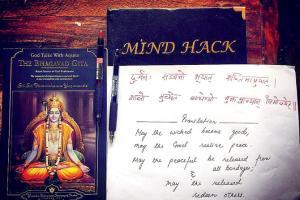 God Talks With Arjuna
THE BHAGAVAD GITA
Royal Science of God-Realization
Sri Sri Paramahansa Yogananda
MIND HACK
दुर्जनः सज्जनो भूयात्
शान्तो मुच्येत बन्धेभ्यो
Translation
May the wicked become good,
may the Good peace.
May the peaceful be released from
all bondages;
&
May the released
redeem others.